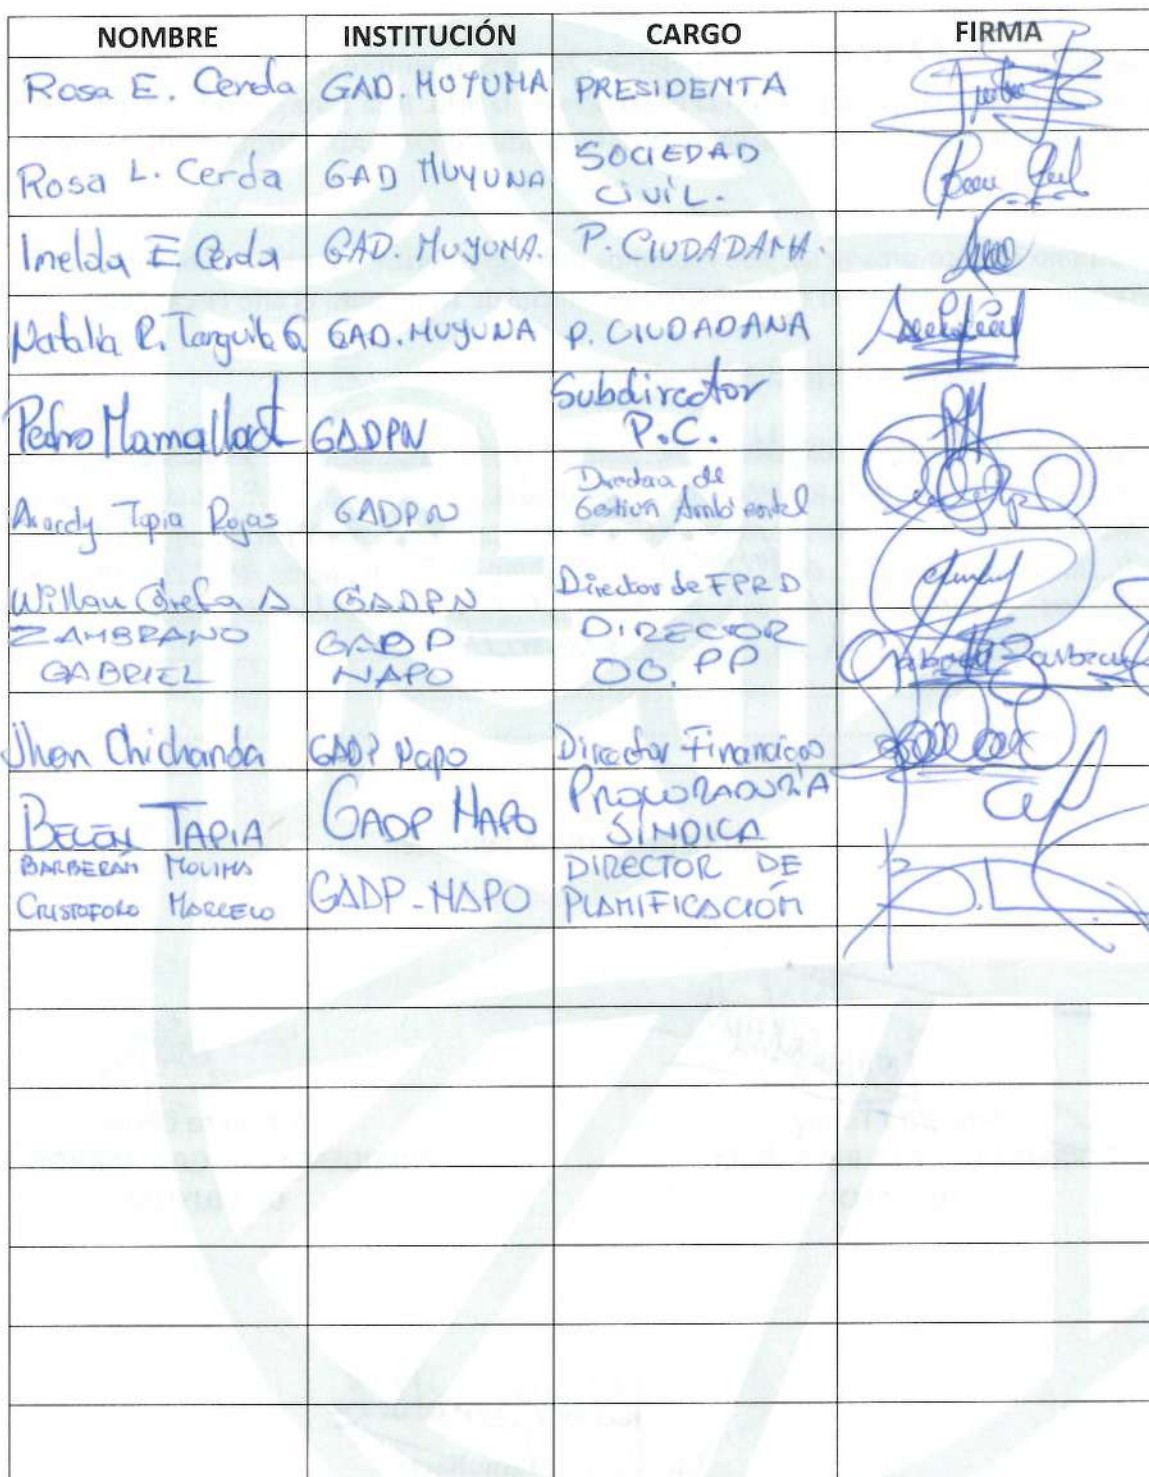 NOMBRE INSTITUCIÓN CARGO FIRMA
Rosa E. Cerda GAD. MUYUNA PRESIDENTA
Rosa L. Cerda GAD MUYUNA SOCIEDAD
CIVIL.
Imelda E Cerda GAD. MUYUNA. P. CIUDADANA.
Natalia R. Tanguila G. GAD. MUYUNA P. CIUDADANA
Pedro Mamallact GADPN Subdirector
P.C.
Tapia Rojas GADPN Directora de
Gestión Ambiental
Willan Grefa A GADPN Director de FPRD
ZAMBRANO GADP DIRECTOR
GABRIEL NAPO OO. PP Gabriel Zambrano
Jhon Chichanda GADP Napo Director Financiero
BELÉN TAPIA GADP NAPO PROCURADURÍA
SÍNDICA
BARBERÁN MOLINA DIRECTOR DE
CRISTOFORO MARCELO GADP-NAPO PLANIFICACIÓN